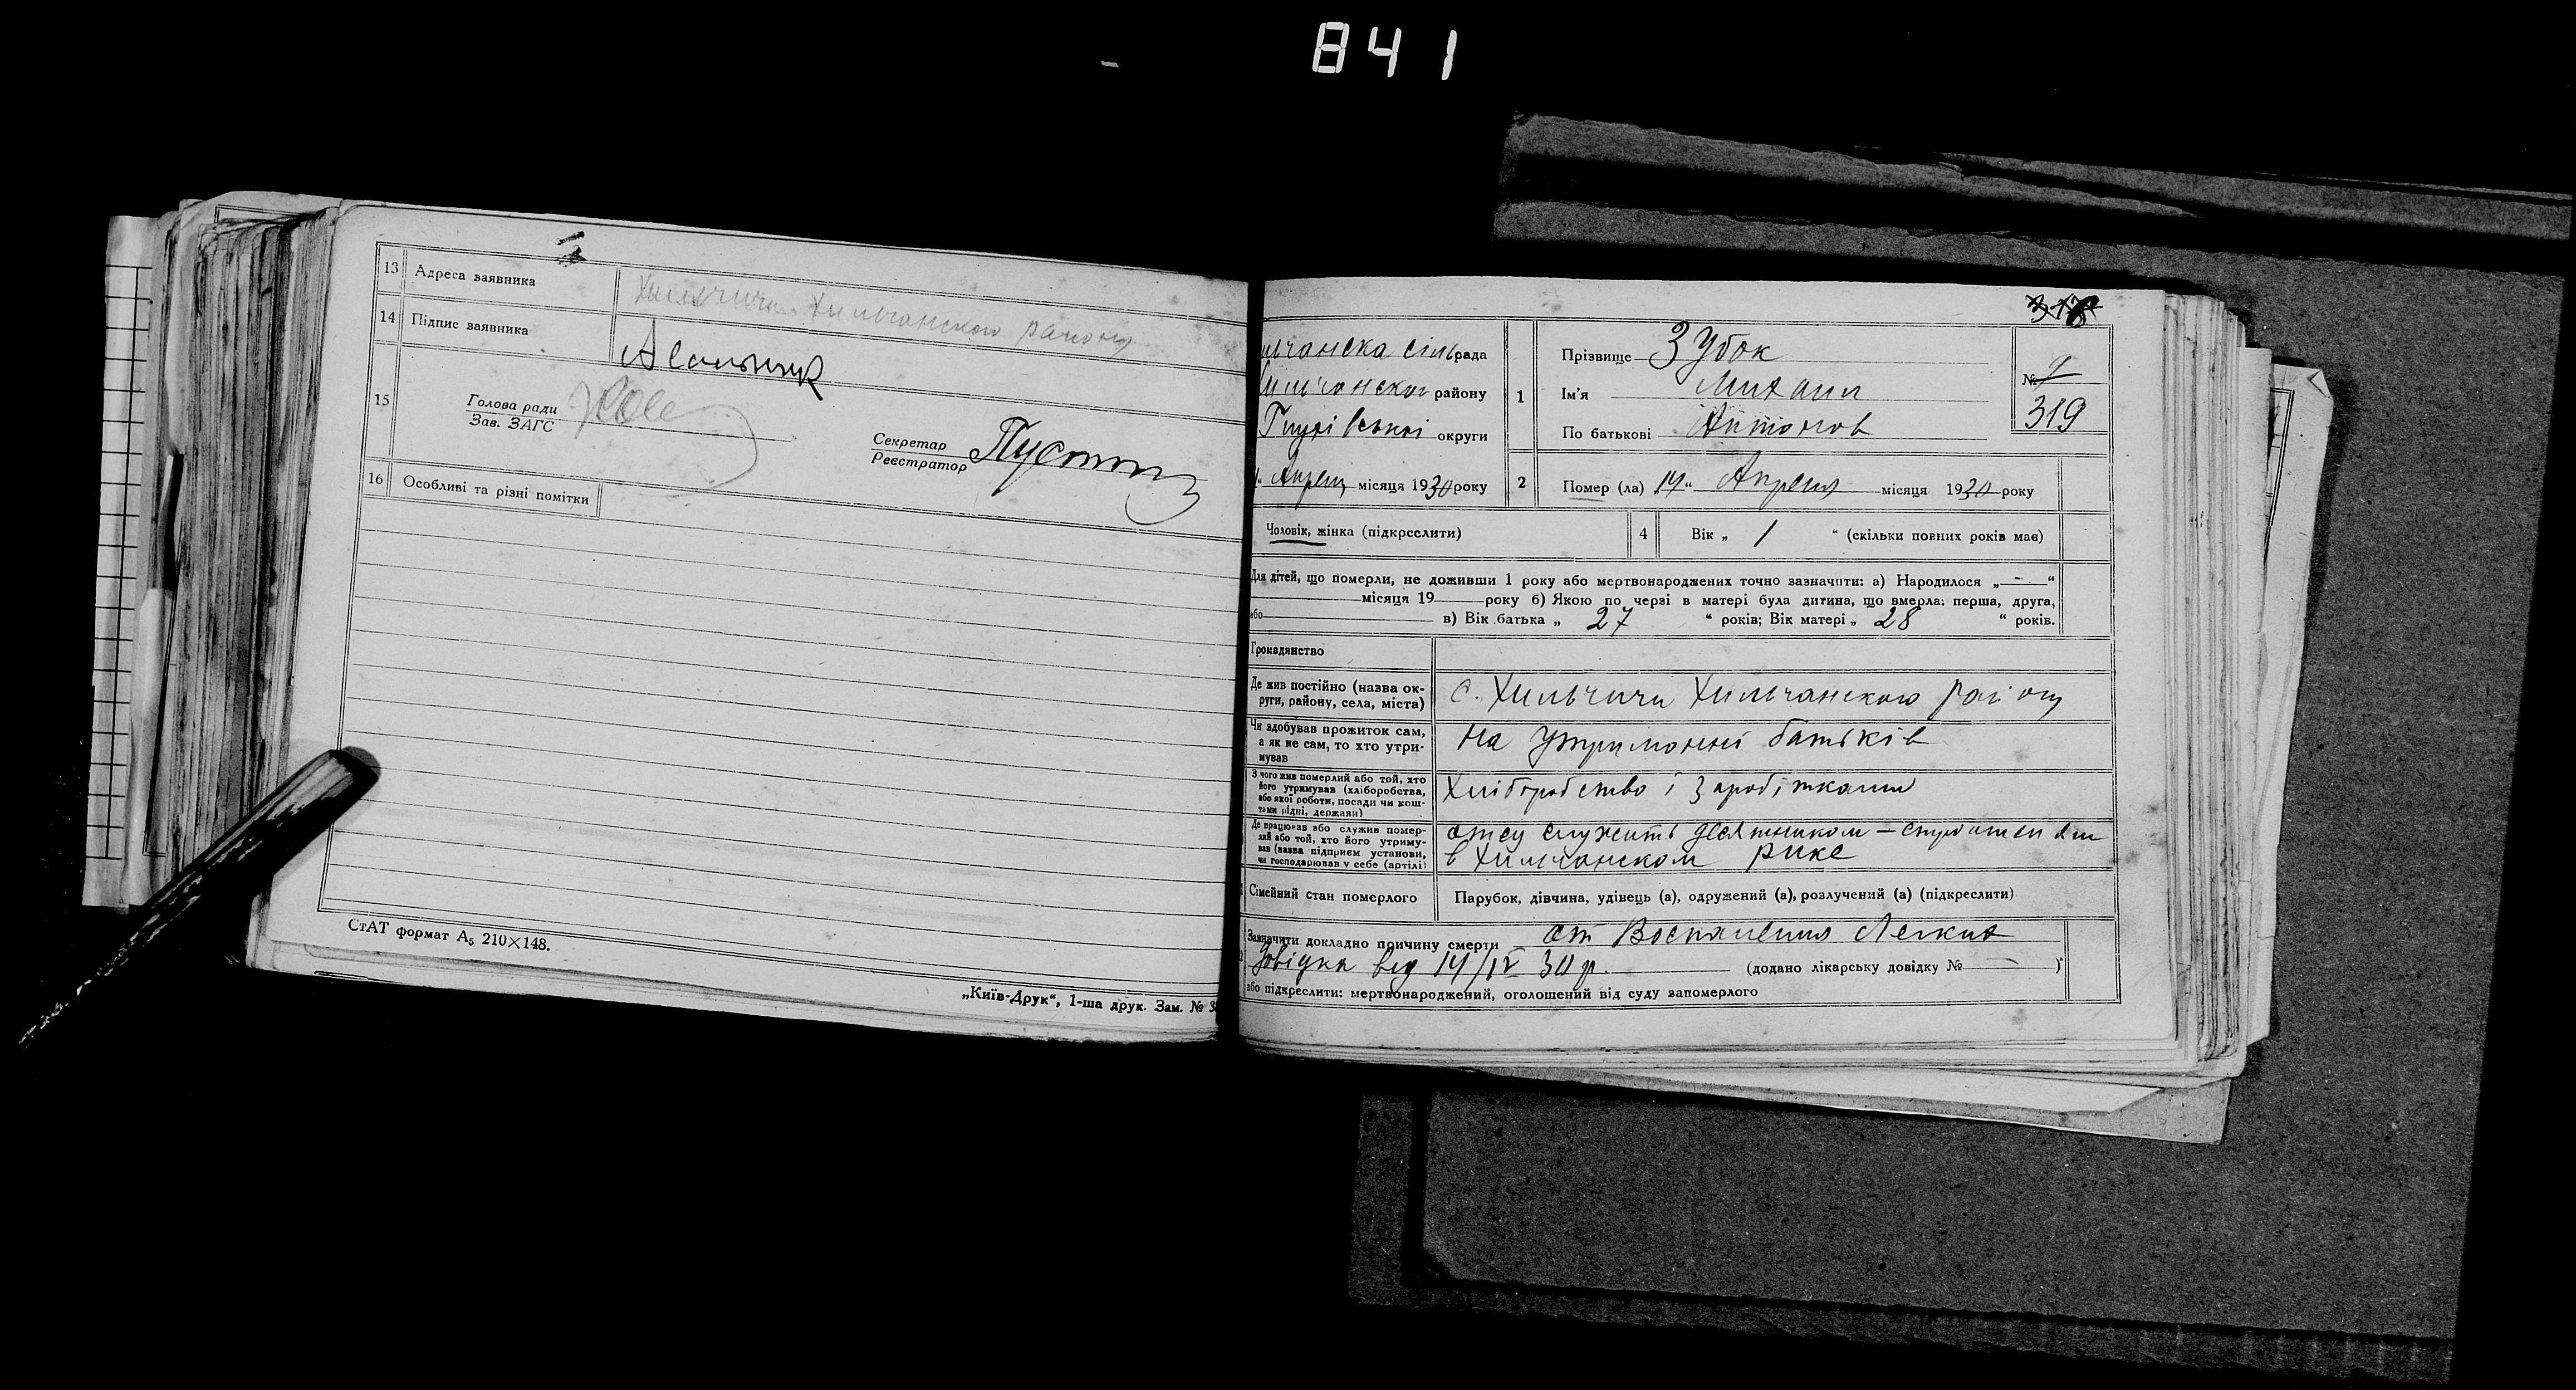 841
13 Адреса заявника
Хильчичи Хильчанского району
14 Підпис заявника
15
Голова ради
Зав. ЗАГС
Секретар
Реєстратор
16 Особливі та різні помітки
СтАТ формат А₅ 210×148.
„Київ-Друк“, 1-ша друк. Зам. №
318
льчанска сільрада
району
округи
місяця 1930 року
1
Прізвище Зубок
Ім'я Михаил
По батькові Антонов
№
319
2
Помер (ла) „14“ Апреля місяця 1930 року
Чоловік, жінка (підкреслити)
4 Вік „ 1 “ (скільки повних років має)
Для дітей, що померли, не доживши 1 року або мертвонароджених точно зазначити: а) Народилося „—“
місяця 19 року б) Якою по черзі в матері була дитина, що вмерла: перша, друга,
або в) Вік батька „ 27 “ років; Вік матері „ 28 “ років.
Громадянство
Де жив постійно (назва ок-
руги, району, села, міста)
с. Хильчичи Хильчанского району
Чи здобував прожиток сам,
а як не сам, то хто утри-
мував
на утриманні батьків
З чого жив померлий або той, хто
його утримував (хліборобства,
або якої роботи, посади чи кош-
тами рідні, держави)
Хліборобство і заробітками
Де працював або служив помер-
лий або той, хто його утриму-
вав (назва підприєм установи,
чи господарював у себе (артілі)
отец служить десятником – строителям
в Хильчанском рике
Сімейний стан померлого
Парубок, дівчина, удівець (а), одружений (а), розлучений (а) (підкреслити)
Зазначити докладно причину смерти от Воспаления Легких
Довідка від 14/IV 30 р. (додано лікарську довідку № — )
або підкреслити: мертвонароджений, оголошений від суду запомерлого